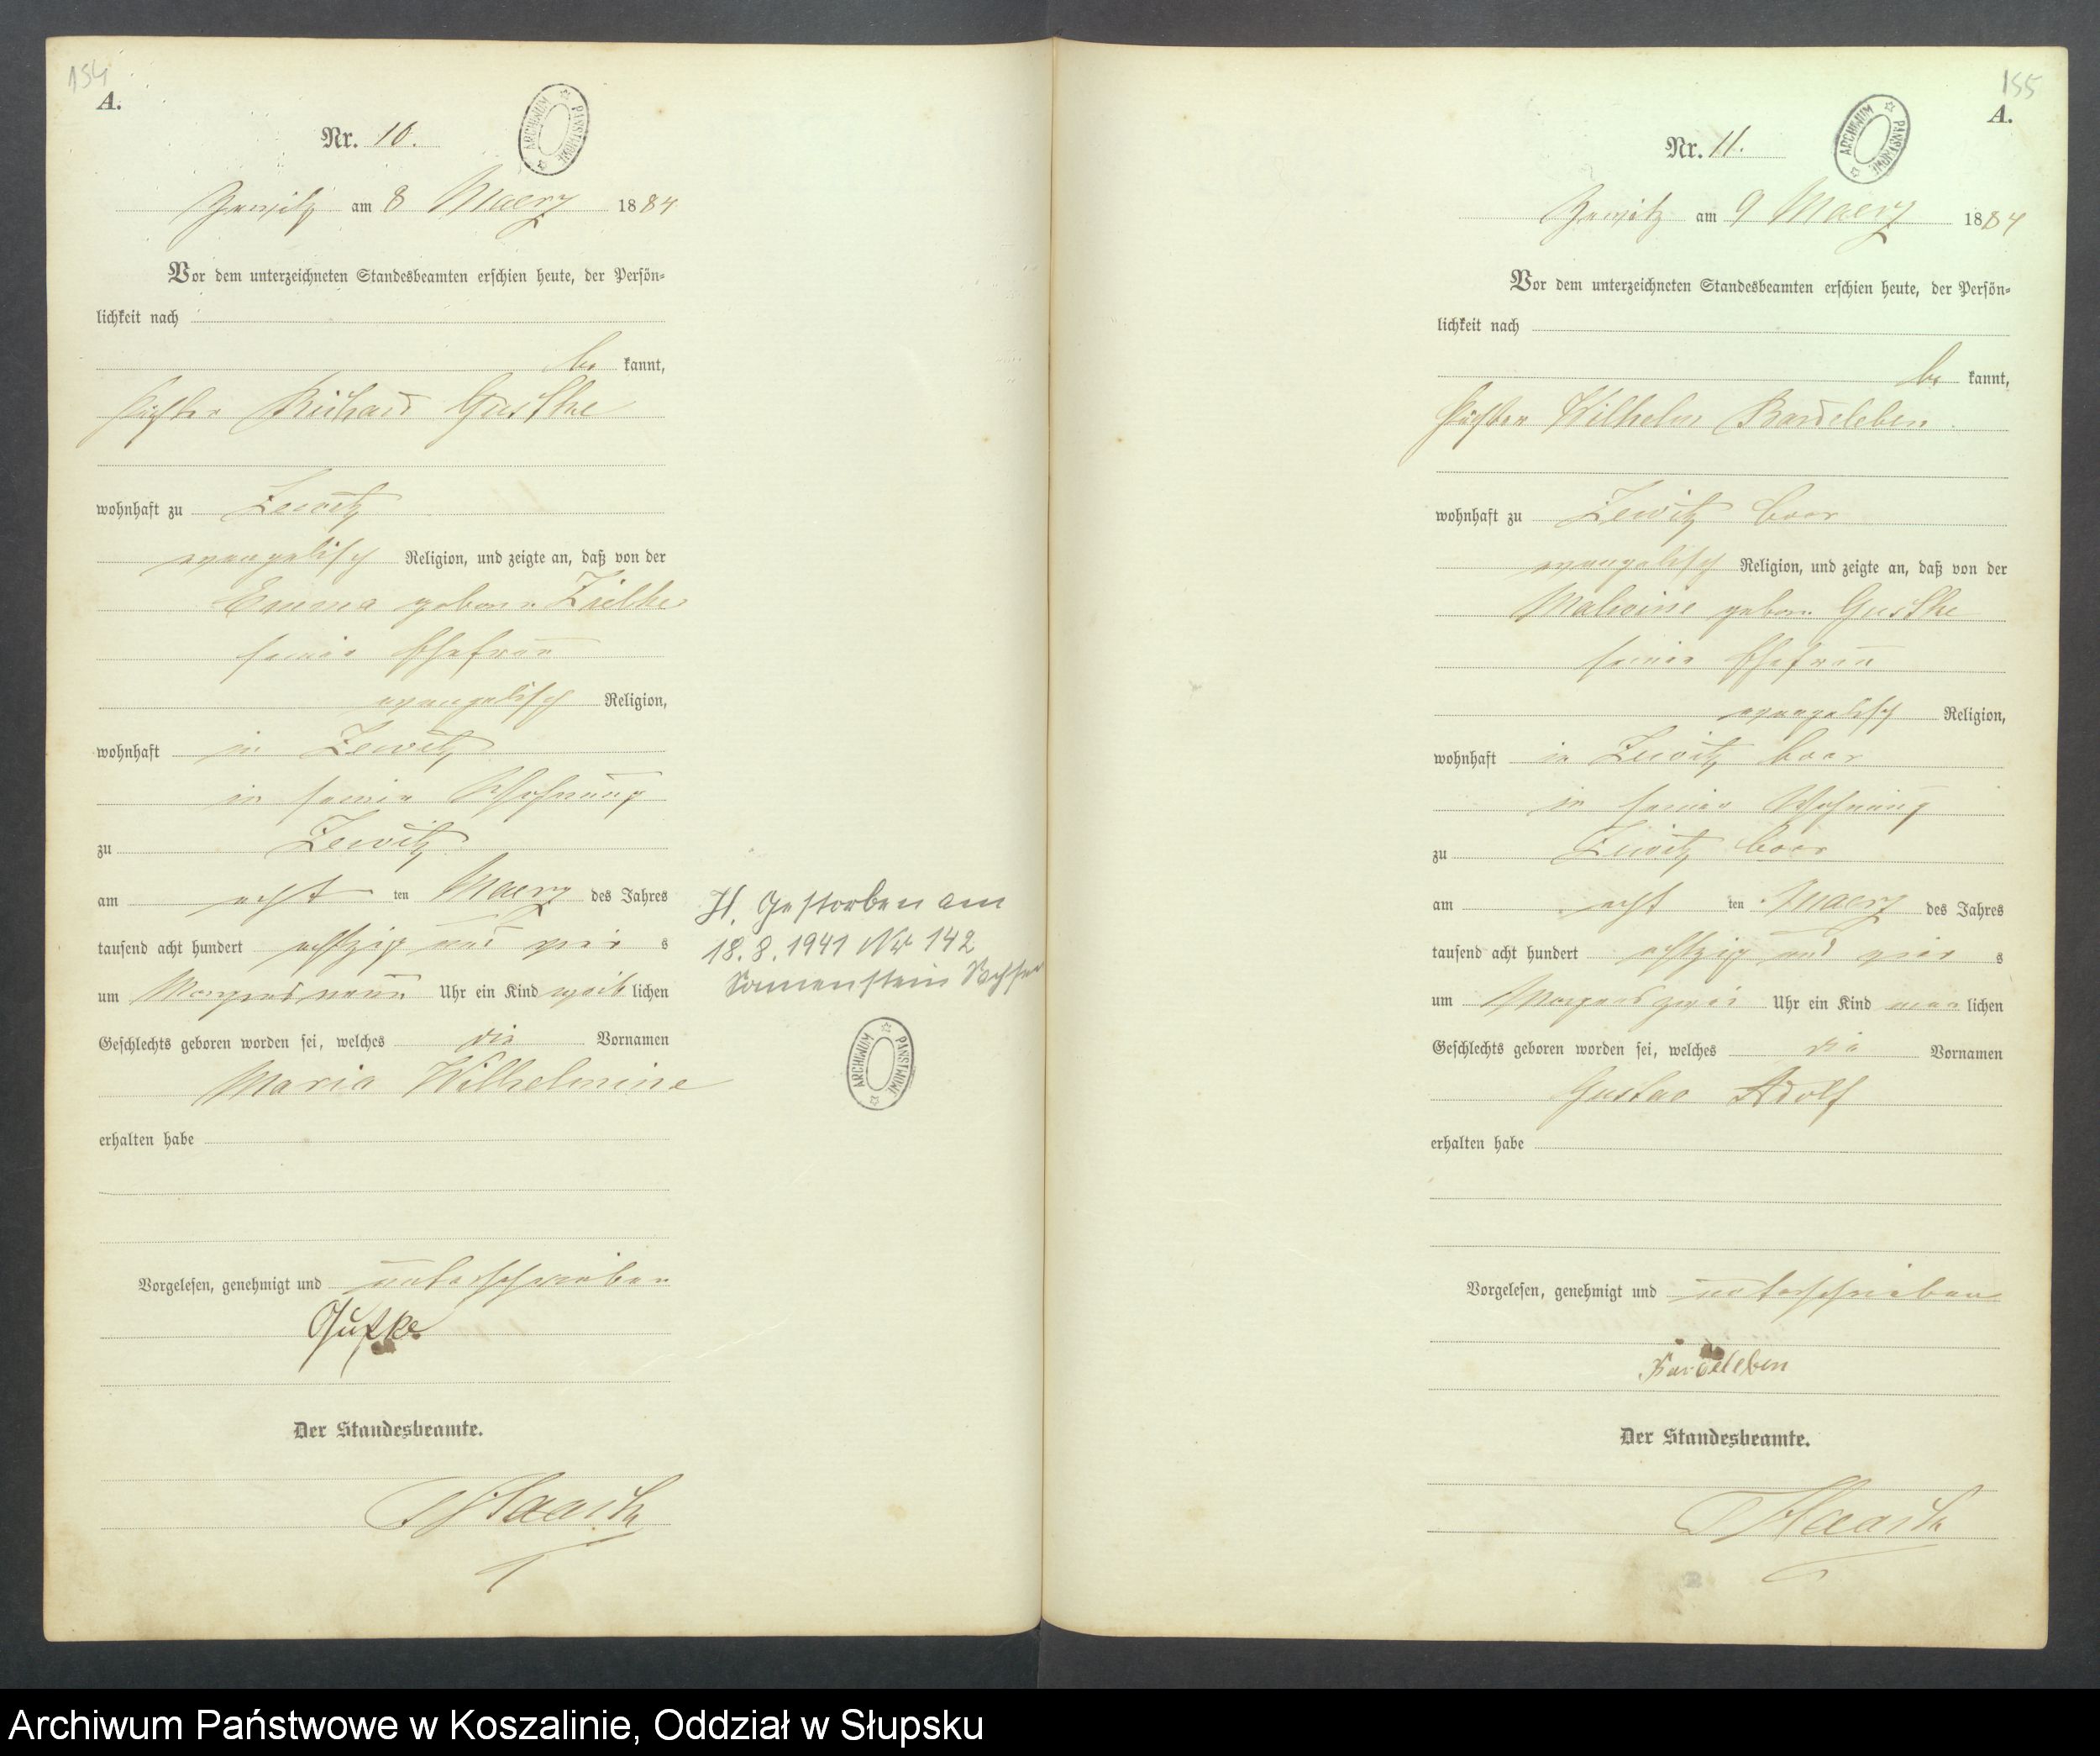 154
A.
Nr. 10.
ARCHIWUM PAŃSTWOWE
Zewitz am 8 Maerz 1884
Vor dem unterzeichneten Standesbeamten erschien heute, der Persön-
lichkeit nach
be kannt,
Pächter Richard Gustke
wohnhaft zu Zewitz
evangelisch Religion, und zeigte an, daß von der
Emma geborn Zielke
seiner Ehefrau
evangelisch Religion,
wohnhaft in Zewitz
in seiner Wohnung
zu Zewitz
am acht ten Maerz des Jahres
tausend acht hundert achtzig und vier s
um Morgens neun Uhr ein Kind weib lichen
Geschlechts geboren worden sei, welches die Vornamen
Maria Wilhelmine
erhalten habe
Vorgelesen, genehmigt und unterschrieben
Gustke
Der Standesbeamte.
H. Gestorben am
18.8.1941 Nr 142
ARCHIWUM PAŃSTWOWE
155
A.
Nr. 11.
ARCHIWUM PAŃSTWOWE
Zewitz am 9 Maerz 1884
Vor dem unterzeichneten Standesbeamten erschien heute, der Persön-
lichkeit nach
be kannt,
Pächter Wilhelm Bardeleben
wohnhaft zu Zewitz boor
evangelisch Religion, und zeigte an, daß von der
Malwine geborn Gustke
seiner Ehefrau
evangelisch Religion,
wohnhaft in Zewitz boor
in seiner Wohnung
zu Zewitz boor
am acht ten Maerz des Jahres
tausend acht hundert achtzig und vier s
um Morgens zwei Uhr ein Kind män lichen
Geschlechts geboren worden sei, welches die Vornamen
Gustav Adolf
erhalten habe
Vorgelesen, genehmigt und unterschrieben
Bardeleben
Der Standesbeamte.
Archiwum Państwowe w Koszalinie, Oddział w Słupsku